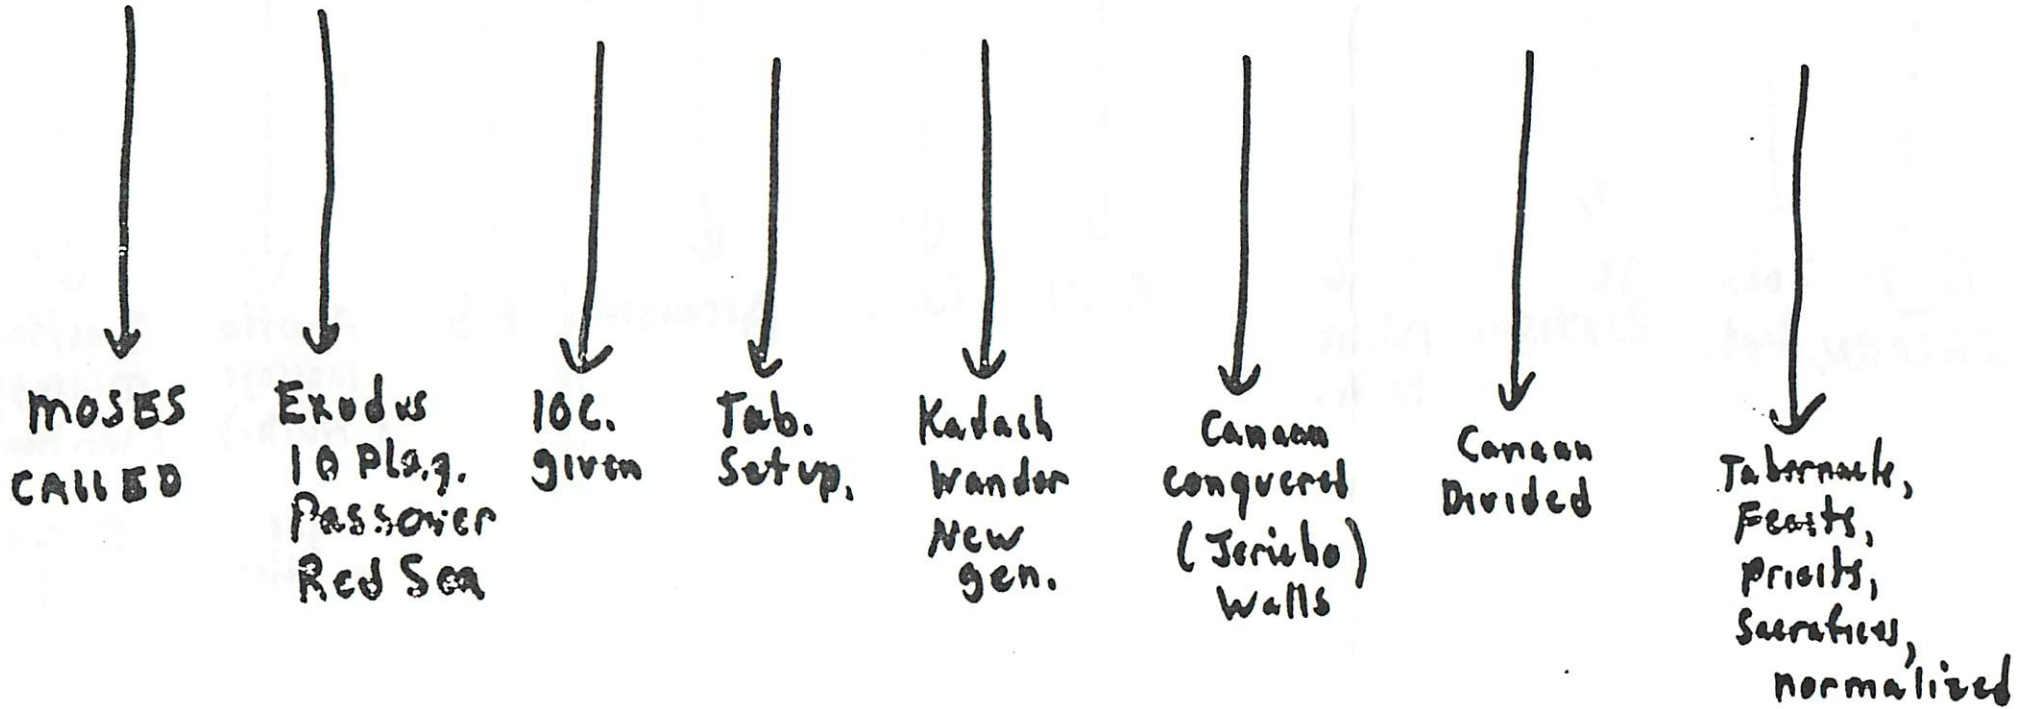 MOSES
CALLED
Exodus
10 Plag.
Passover
Red Sea
10C.
given
Tab.
Set up.
Kadash
Wander
New
gen.
Canaan
conquered
(Jericho)
Walls
Canaan
Divided
Tabernacle,
Feasts,
priests,
Sacrafices,
normalized